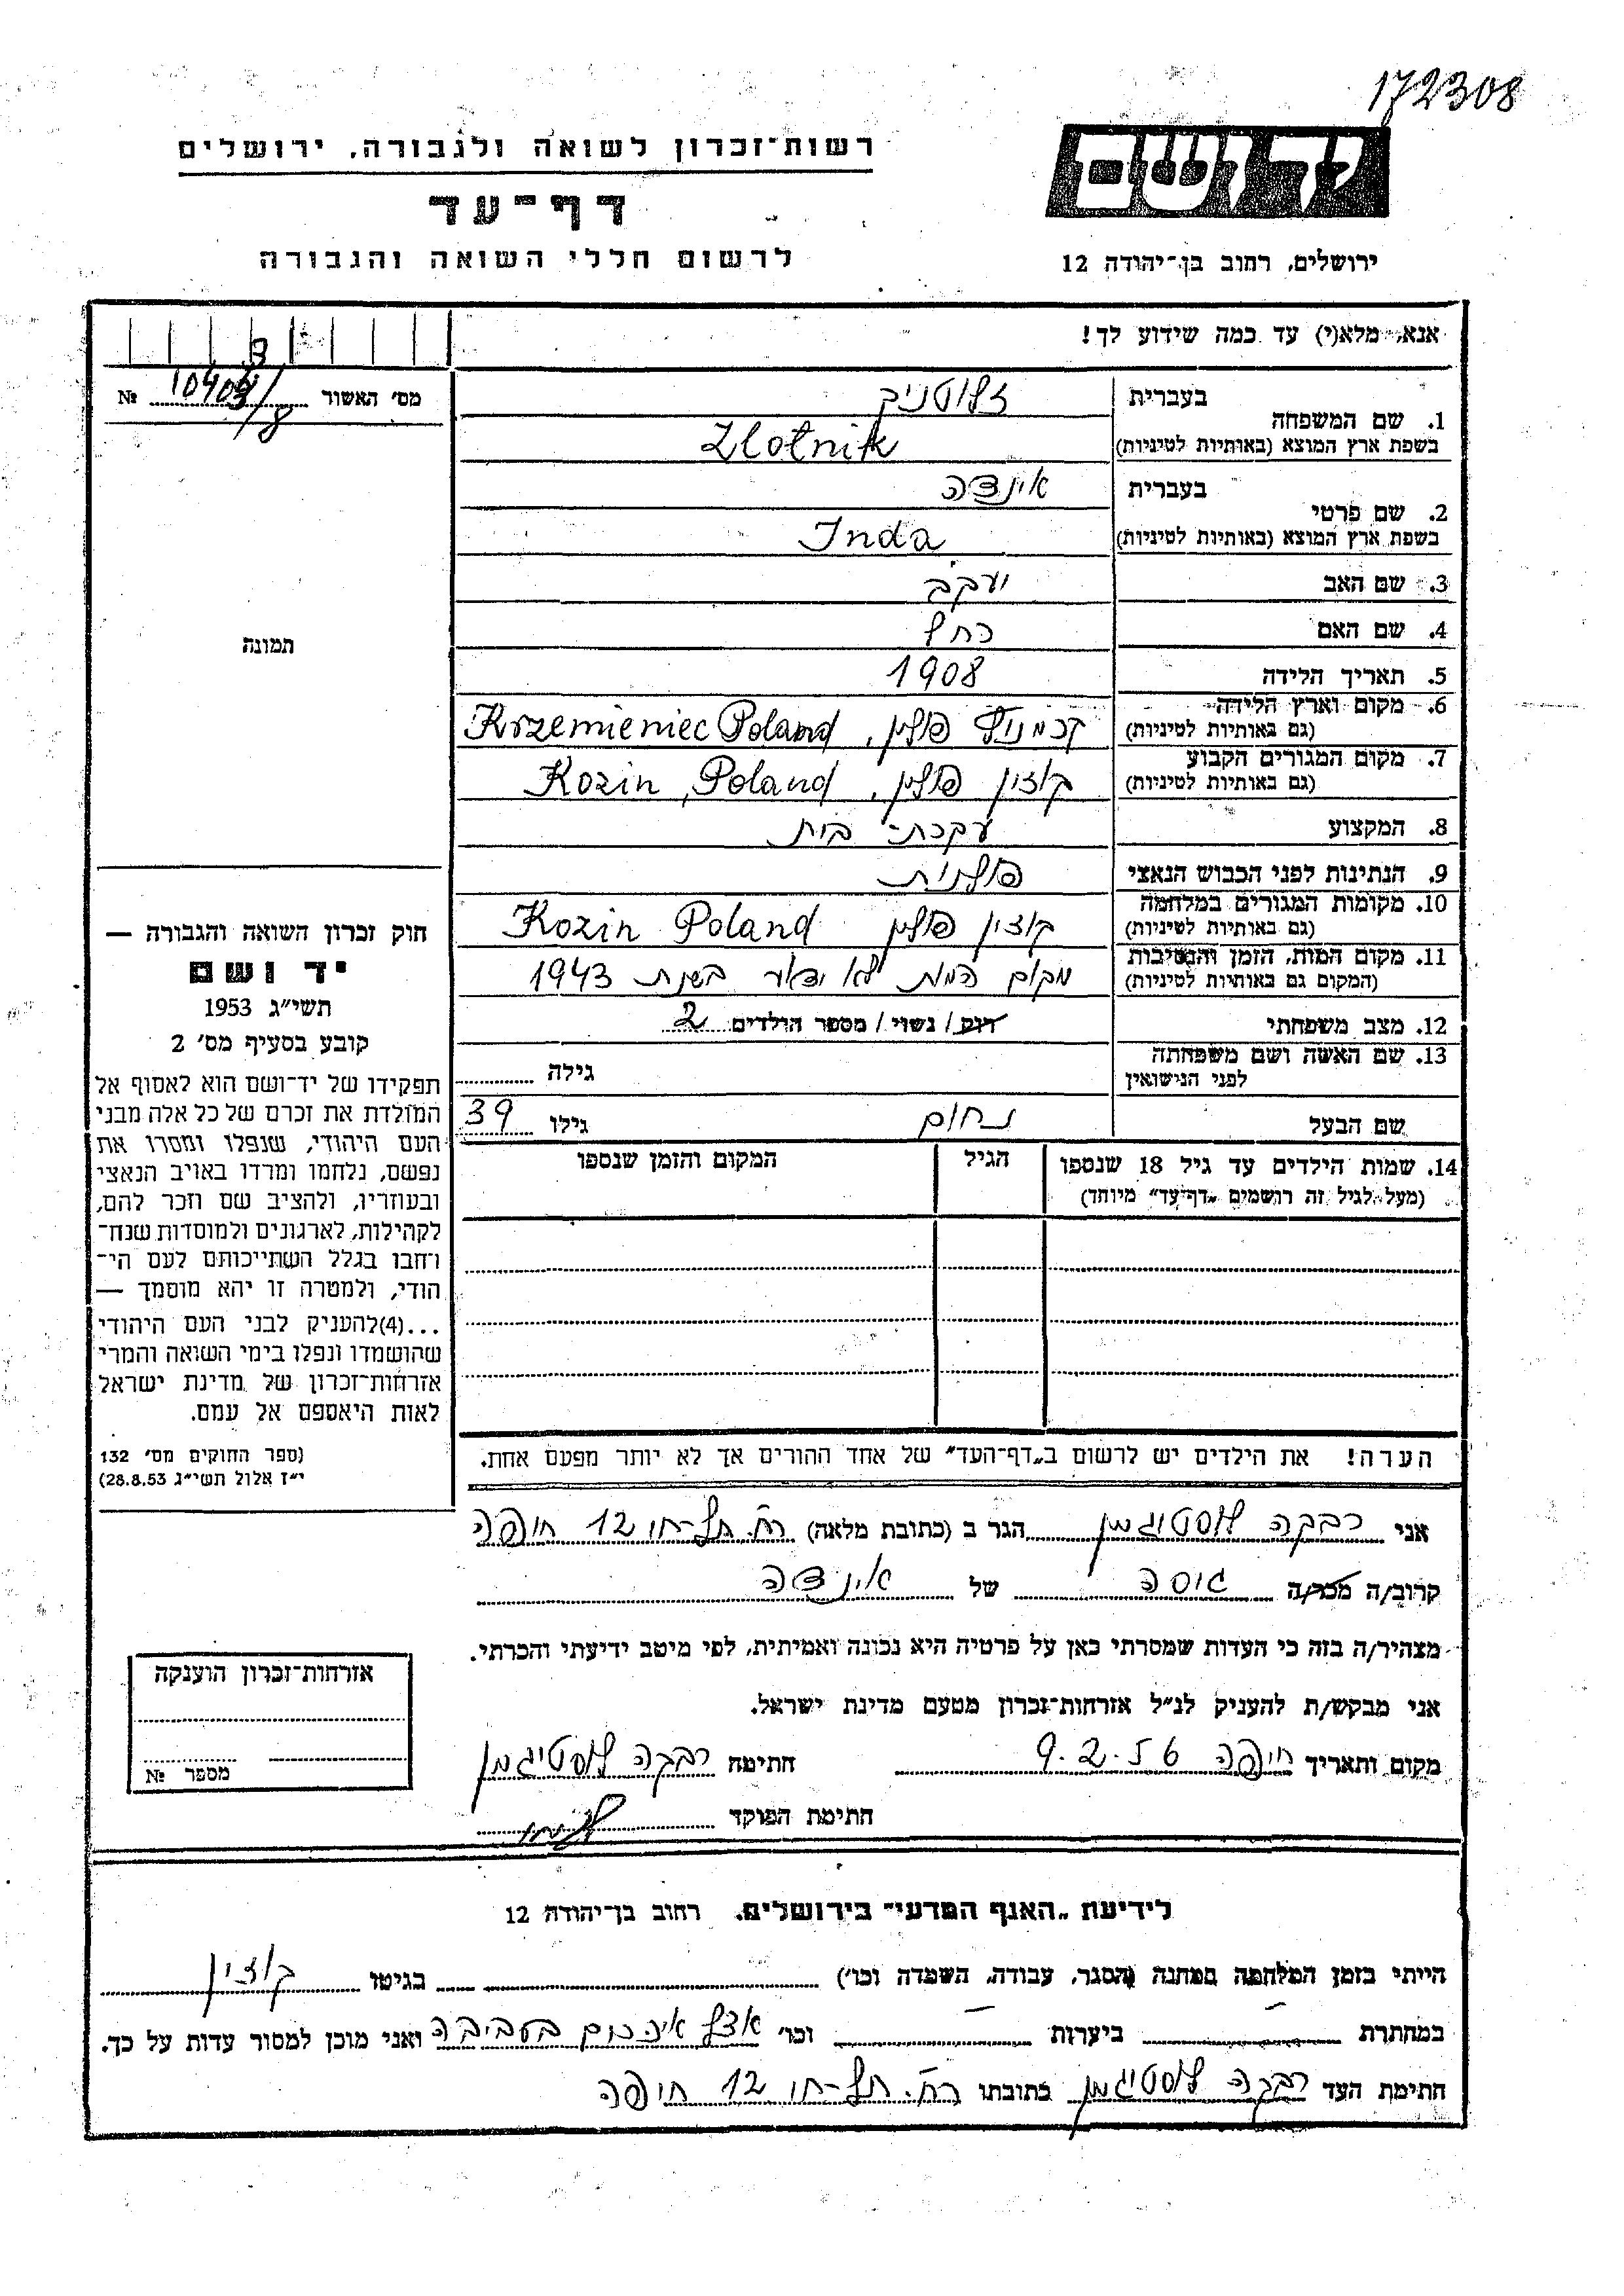 172308
יד ושם
רשות־זכרון לשואה ולגבורה, ירושלים
דף־עד
לרשום חללי השואה והגבורה
ירושלים, רחוב בן־יהודה 12
אנא, מלא(י) עד כמה שידוע לך!
מס' האשור № 10403/8
1. שם המשפחה
בעברית זלוטניק
בשפת ארץ המוצא (באותיות לטיניות) Zlotnik
2. שם פרטי
בעברית אינדה
בשפת ארץ המוצא (באותיות לטיניות) Inda
3. שם האב יעקב
4. שם האם רחל
5. תאריך הלידה 1908
6. מקום וארץ הלידה (גם באותיות לטיניות) קרמניץ פולין, Krzemieniec Poland
7. מקום המגורים הקבוע (גם באותיות לטיניות) קוזין פולין, Kozin, Poland
8. המקצוע עקרת-בית
9. הנתינות לפני הכבוש הנאצי פולנית
10. מקומות המגורים במלחמה (גם באותיות לטיניות) קוזין פולין Kozin Poland
11. מקום המות, הזמן והנסיבות (המקום גם באותיות לטיניות) מקום המות לא ידוע בשנת 1943
12. מצב משפחתי רווק / נשוי / מספר הילדים 2
13. שם האשה ושם משפחתה לפני הנישואין גילה
שם הבעל נחום גילו 39
14. שמות הילדים עד גיל 18 שנספו
(מעל לגיל זה רושמים „דף־עד" מיוחד)
הגיל
המקום והזמן שנספו
הערה! את הילדים יש לרשום ב„דף־העד" של אחד ההורים אך לא יותר מפעם אחת.
תמונה
חוק זכרון השואה והגבורה —
יד ושם
תשי"ג 1953
קובע בסעיף מס' 2
תפקידו של יד־ושם הוא לאסוף אל
המולדת את זכרם של כל אלה מבני
העם היהודי, שנפלו ומסרו את
נפשם, נלחמו ומרדו באויב הנאצי
ובעוזריו, ולהציב שם וזכר להם,
לקהילות, לארגונים ולמוסדות שנח־
רחבו בגלל השתייכותם לעם הי־
הודי, ולמטרה זו יהא מוסמך —
...(4) להעניק לבני העם היהודי
שהושמדו ונפלו בימי השואה והמרי
אזרחות־זכרון של מדינת ישראל
לאות היאספם אל עמם.
(ספר החוקים מס' 132
י"ז אלול תשי"ג 28.8.53)
אני רבקה לוסטיגמן הגר ב (כתובת מלאה) רח. תל-חי 12 חיפה
קרוב/ה מכר/ה גיסה של אינדה
מצהיר/ה בזה כי העדות שמסרתי כאן על פרטיה היא נכונה ואמיתית, לפי מיטב ידיעתי והכרתי.
אני מבקש/ת להעניק לנ"ל אזרחות־זכרון מטעם מדינת ישראל.
מקום ותאריך חיפה 9.2.56 חתימה רבקה לוסטיגמן
חתימת הפוקד
אזרחות־זכרון הוענקה
מספר №
לידיעת „האגף המדעי" בירושלים, רחוב בן־יהודה 12
הייתי בזמן המלחמה במחנה (הסגר, עבודה, השמדה וכו') בגיטו קוזין
במחתרת — ביערות — וכו' אצל איכרים בסביבה ואני מוכן למסור עדות על כך.
חתימת העד רבקה לוסטיגמן כתובתו רח. תל-חי 12 חיפה